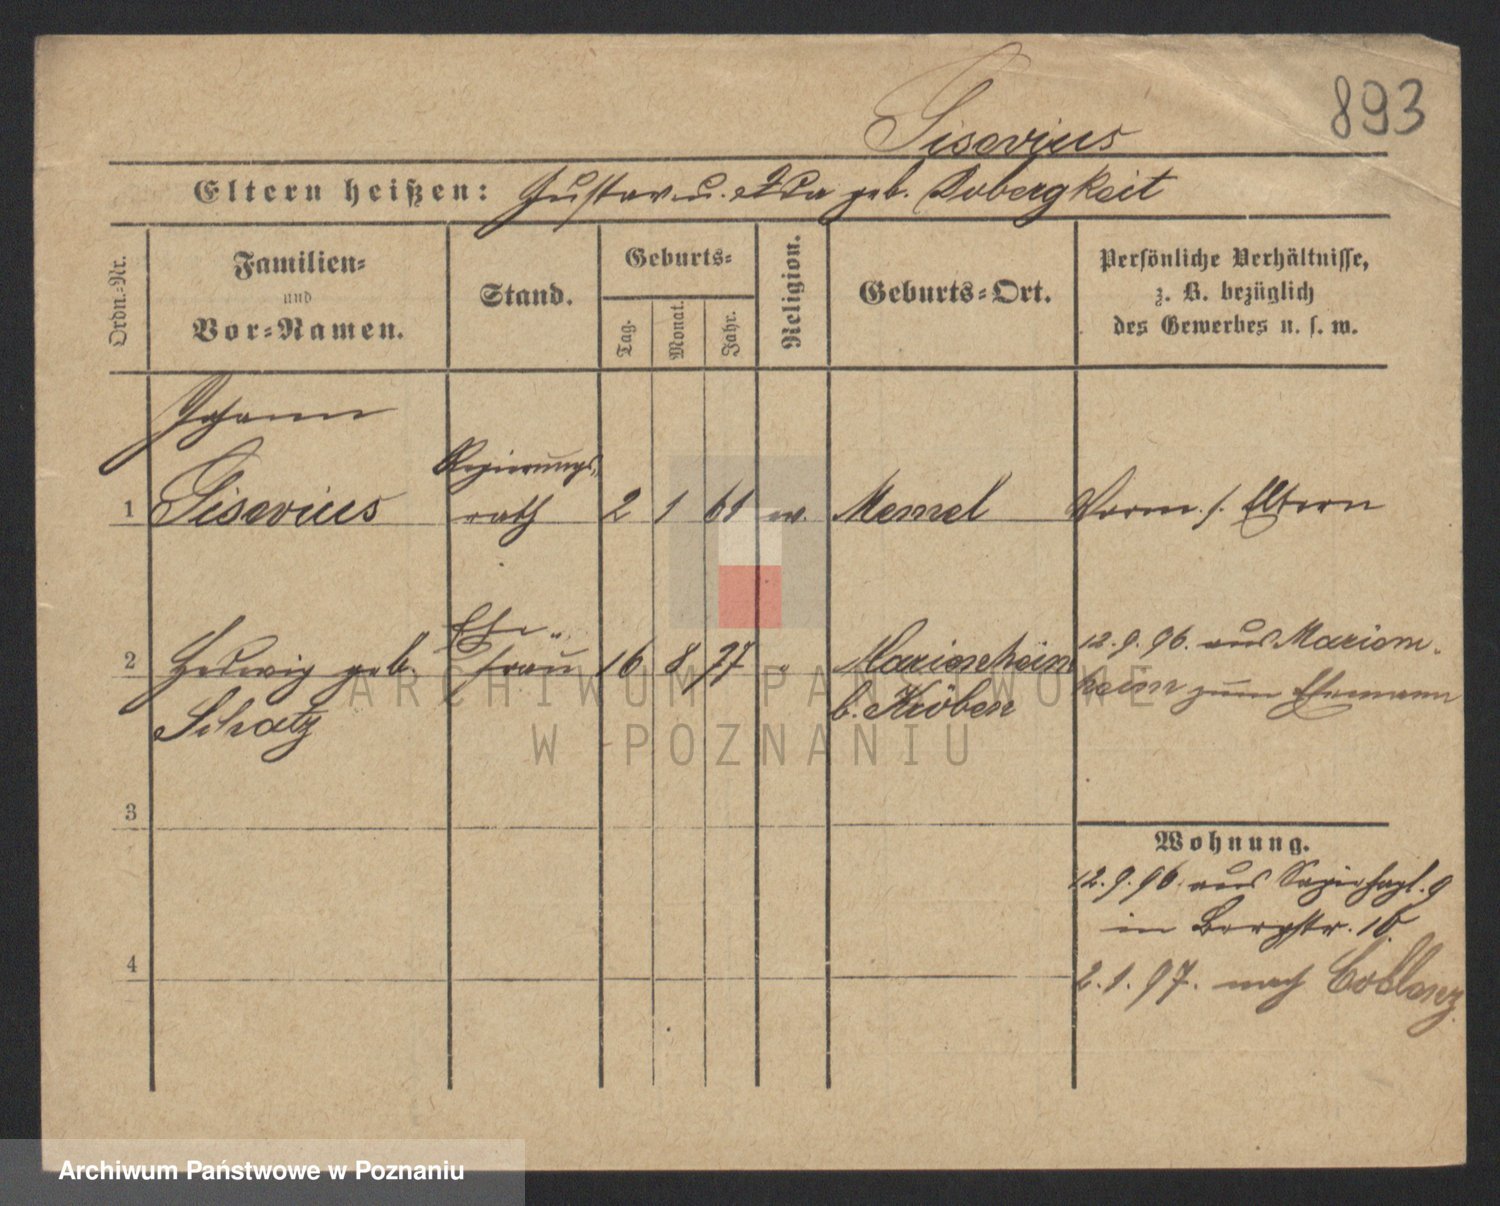 893
Gisevius
Eltern heißen: Gustav u. Ida geb. Kobergkeit
Ordn.-Nr.
Familien-
und
Vor-Namen.
Stand.
Geburts-
Tag.
Monat.
Jahr.
Religion.
Geburts-Ort.
Persönliche Verhältnisse,
z. B. bezüglich
des Gewerbes u. s. w.
Johann
1 Gisevius
Regierungs-
rath
2 1 61 ev. Memel
Vorm. s. Eltern
2 Hedwig geb.
Schatz
Ehe-
frau
16 8 77 " Marienheim
b. Kröben
12.9.96. aus Marien-
heim zum Ehemann
3
4
Wohnung.
12.9.96. aus Sapiehapl. 9
in Bergstr. 16.
2.1.97. nach Coblenz.
ARCHIWUM PAŃSTWOWE
W POZNANIU
Archiwum Państwowe w Poznaniu